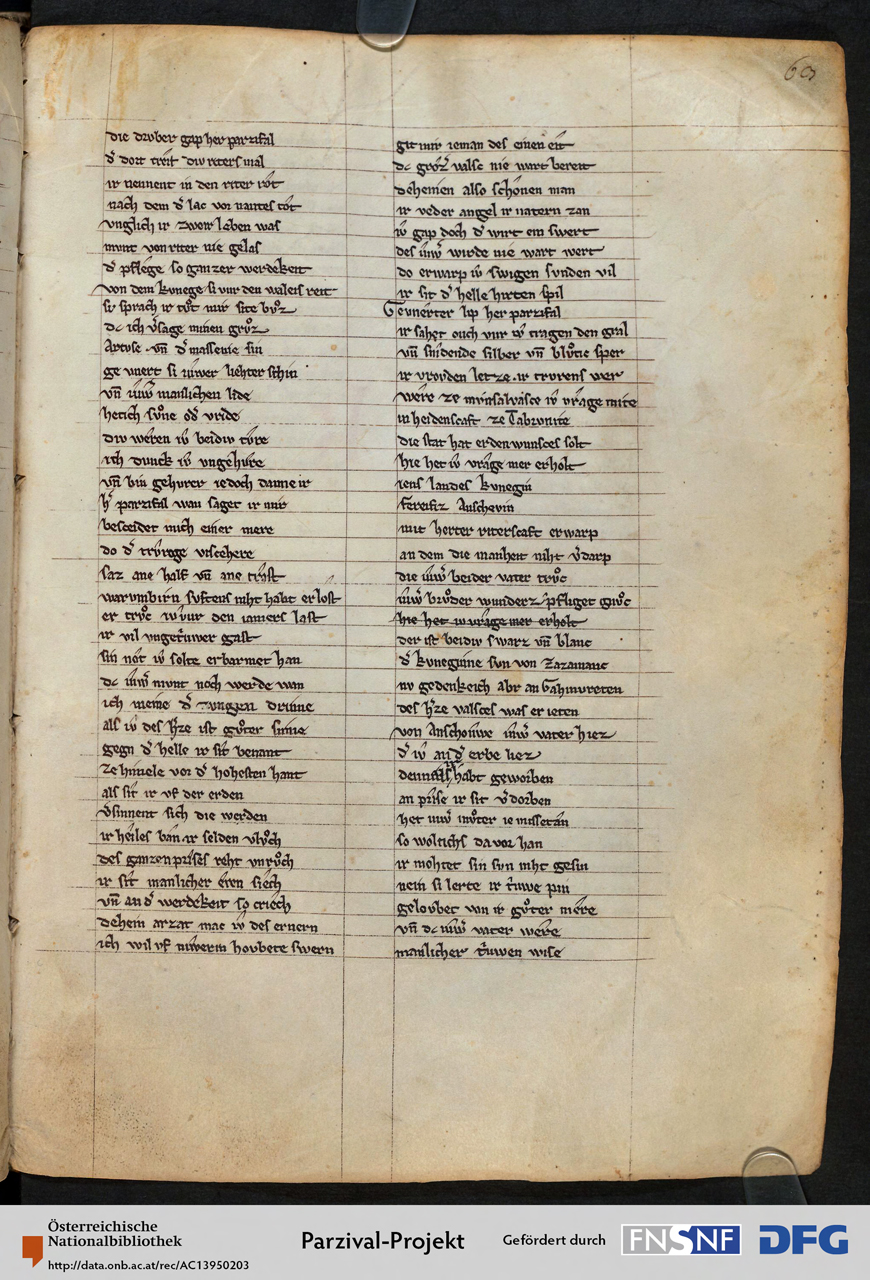 die druber gap her parzifal
d' dort treit diu riters mal
ir nennent in den riter rot
nach dem d' lac vor nantes tot
vnglich ir zweir leben was
munt von riter nie gelas
d' pflege so ganzer werdekeit
von dem kvnege si vur den waleis reit
si sprach ir tvot mir site bvoz
dc ich v'sage minen grvoz
Artuse . vn̄ d' massenie sin
ge vnert si iuwer liehter schin
vn̄ iuw' manlichen lide
hetich svone od' vride
div weren iv beidiv tivre
ich dunck iv vngehivre
vn̄ bin gehvrer iedoch danne ir
h' parzifal wan saget ir mir
besceidet mich einer mere
do d' trvroge viscehere
saz ane halt vn̄ ane trost
warumb irn svftens niht habt erlost
er trvoc iv vur den iamers last
ir vil vngetruwer gast
sin not iv solte erbarmet han
dc iuw' munt noch werde wan
ich meine d' zvngen drinne
als iv des h'ze ist guoter sinne
gegn d' helle ir sit benant
ze himele vor d' hohesten hant
als sit ir vf der erden
v'sinnent sich die werden
ir heiles ban ir selden vlvoch
des ganzen prises reht vnrvoch
ir sit manlicher eren siech
vn̄ an d' werdekeit so criech
dehein arzat mac iv des ernern
ich wil vf iuwerm hovbete swern
60
git mir ieman des einen eit
dc grozer valsc nie wart bereit
deheinen also schonen man
ir veder angel ir natern zan
iv gap doch d' wirt ein swert
des iuw' wirde nie wart wert
do erwarp iv swigen sunden vil
ir sit d' helle hirten spil
Gevnerter lip her parzifal
ir sahet ouch vur iv tragen den gral
vn̄ snidende silber vn̄ blvotic sper
ir vrovden letze . ir trvrens wer
were ze mvnsalvasce iv vrage mite
in heidenscaft ze Tabrunite
die stat hat erden wunsces solt
hie het iv vrage mer erholt
iens landes kvnegin
fereifiz Anschevin
mit herter riterscaft erwarp
an dem die manheit niht v'darp
die iuw' beider vater trvoc
iuw' brvoder wunderz pfliget gnvoc
hie het iv vrage mer erholt
der ist beidiv swarz vn̄ blanc
d' kvneginne svn von zazamanc
nv gedenke ich abr an Gahmvreten
des h'ze valsces was er ieten
von Anschouwe iuw' vater hiez
d' iv and' erbe liez
denn als ir habt geworben
an prise ir sit v'dorben
het iuw' mvoter ie missetan
so wolt ichs da vor han
ir mohtet sin svn niht gesin
nein si lerte ir triuwe pin
geloubet von ir guoter mere
vn̄ dc iuw' vater were
manlicher triuwen wise
Österreichische
Nationalbibliothek
http://data.onb.ac.at/rec/AC13950203
Parzival-Projekt
Gefördert durch
FNSNF
DFG